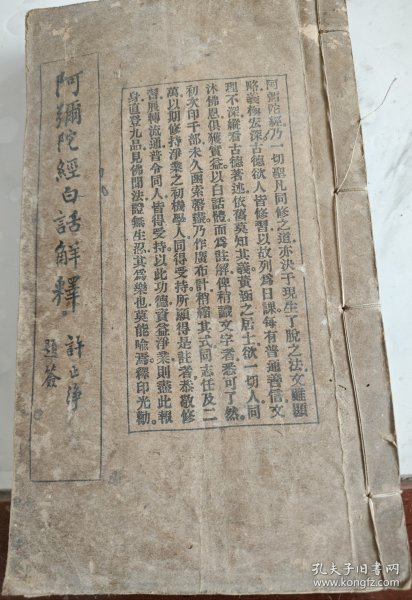 阿彌陀經白話解釋
許止淨
題簽
阿彌陀經乃一切聖凡同修之道亦決于現生了脫之法文雖顯
路義極宏深古德欲人皆修習以故列為日課每有普通善信文
理不深縱看古德著述依舊莫知其義黃涵之居士欲一切人同
沐佛恩俱獲實益以白話體而為註解俾稍識文字者悉可了然
初次印千部未久函索罄盡乃作廣布計稍縮其式同志任及二
萬以期修持淨業之初機學人同得受持所願得是註者悉敬修
習展轉流通普令同人皆得受持以此功德資益淨業則盡此報
身直登九品見佛聞法證無生忍其為樂也莫能喻焉釋印光勸
孔夫子旧书网